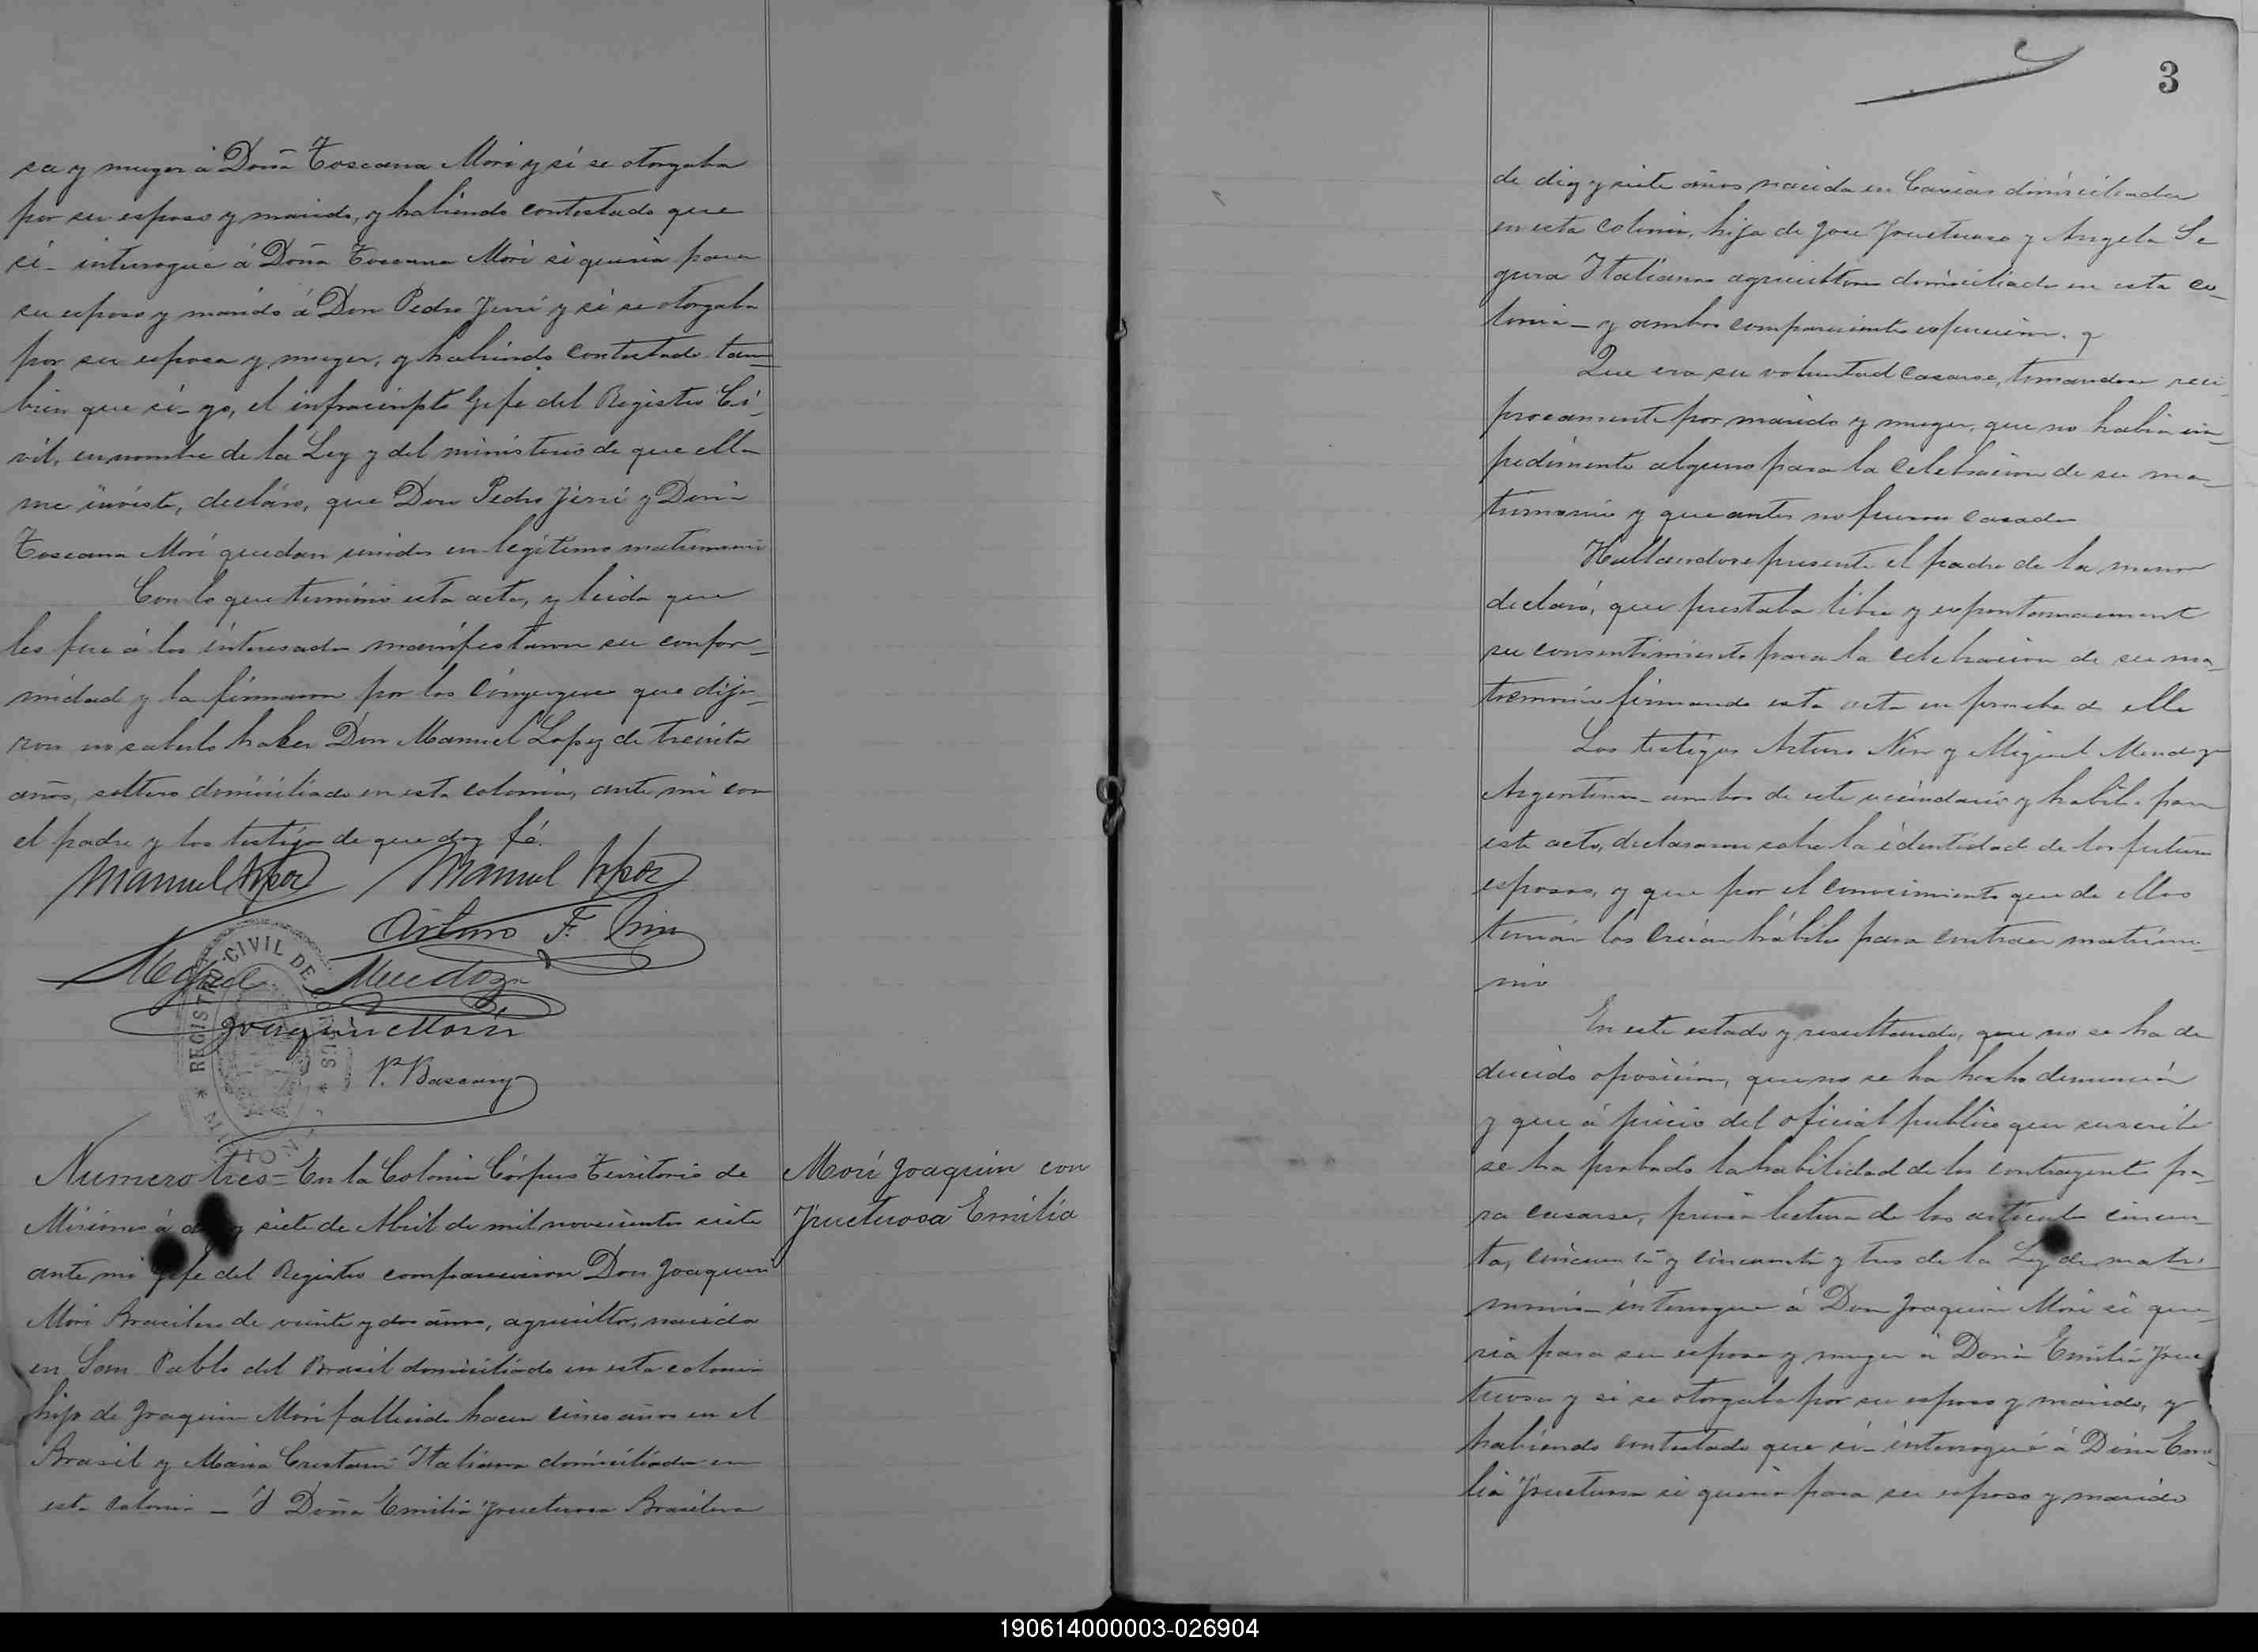 sa y muger á Doña Toscana Mori y si se otorgaba
por su esposo y marido, y habiendo contestado que
sí_ interrogué á Doña Toscana Mori si queria para
su esposo y marido á Don Pedro Jerri y si se otorgaba
por su esposa y muger, y habiendo contestado tam_
bien que si_ yo, el infrascripto Gefe del Registro Ci_
vil, en nombre de la Ley y del ministerio de que ella
me inviste, declaro, que Don Pedro Jerri y Doña
Toscana Mori quedan unidos en legítimo matrimonio
Con lo que terminó esta acta, y leida que
les fue á los interesados manifestaron su confor_
midad y la firmaron por los cónyuges que dije_
ron no saberlo haker Don Manuel Lopez de treinta
años, soltero domiciliado en esta colonia, ante mi con
el padre y los testigos de que doy fé.
Manuel Lopez Manuel Lopez
Arturo F. Nin
Miguel Mendoza
Joaquin Morin
P. Bascary
REGISTRO CIVIL DE CORPUS * MISIONES *
Numero tres = En la Colonia Córpus Territorio de
Misiones á diez y siete de Abril de mil novecientos siete
ante mi Gefe del Registro comparecieron Don Joaquin
Mori Brasilero de veinte y dos años, agricultor, nacido
en San Pablo del Brasil domiciliado en esta colonia
hijo de Joaquin Mori fallecido hacen cinco años en el
Brasil y Maria Italiana domiciliada en
esta Colonia _ Y Doña Emilia Fructuosa Brasilera
Mori Joaquin con
Fructuosa Emilia
3
de diez y siete años nacida en Caxias domiciliada
en esta Colonia, hija de Jose Fructuoso y Angela Se
gura Italianos agricultores domiciliados en esta co_
lonia_ y ambos comparecientes espusieron. y
Que era su voluntad casarse, tomandose reci_
procamente por marido y muger, que no habia im_
pedimento alguno para la celebracion de su ma_
trimonio y que antes no fueron casados
Hallandose presente el padre de la menor
declaró, que prestaba libre y espontaneament
su consentimiento para la celebracion de su ma_
tremonio firmando esta acta en prueba de ello
Los testigos Arturo Nin y Miguel Mendoza
Argentinos_ ambos de este vecindario y habiles para
este acto, declararon sobre la identidad de los futuros
esposos, y que por el conocimiento que de ellos
tenian los creian hábiles para contraer matrimo_
nio
En este estado y resultando, que no se ha de
ducido oposicion, que no se ha hecho denuncia
y que á juicio del oficial publico que suscribe
se ha probado la habilidad de los contrayentes pa_
ra casarse, previa lectura de los articulos cincuen_
ta, y cincuenta y tres de la Ley de matri_
monio_ interrogué á Don Joaquin Mori si que_
ria para su esposa y muger á Doña Emilia Fruc_
tuosa y si se otorgaba por su esposo y marido, y
habiendo contestado que si_ interrogué á Doña Emi_
lia Fructuosa si queria para su esposo y marido
190614000003-026904